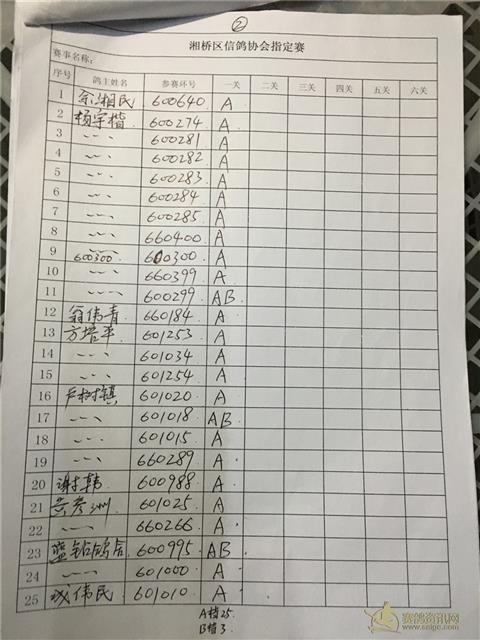 ②
湘桥区信鸽协会指定赛
赛事名称:
序号 鸽主姓名 参赛环号 一关 二关 三关 四关 五关 六关
1 余湘民 600640 A
2 杨宇楷 600274 A
3 ~~、 600281 A
4 ~~、 600282 A
5 ~~、 600283 A
6 ~~、 600284 A
7 ~~、 600285 A
8 ~~、 660400 A
9 600300 600300 A
10 ~~、 660399 A
11 ~~、 600299 AB
12 翁伟青 660184 A
13 方培平 601253 A
14 ~~、 601034 A
15 ~~、 601254 A
16 卢树镇 601020 A
17 ~~、 601018 AB
18 ~~、 601015 A
19 ~~、 660289 A
20 谢韩 600988 A
21 黄彦洲 601025 A
22 ~~、 660266 A
23 蓝钻鸽舍 600995 AB
24 ~~、 601000 A
25 伟民 601010 A
A档25
B档3
赛鸽资讯网
www.saige.com